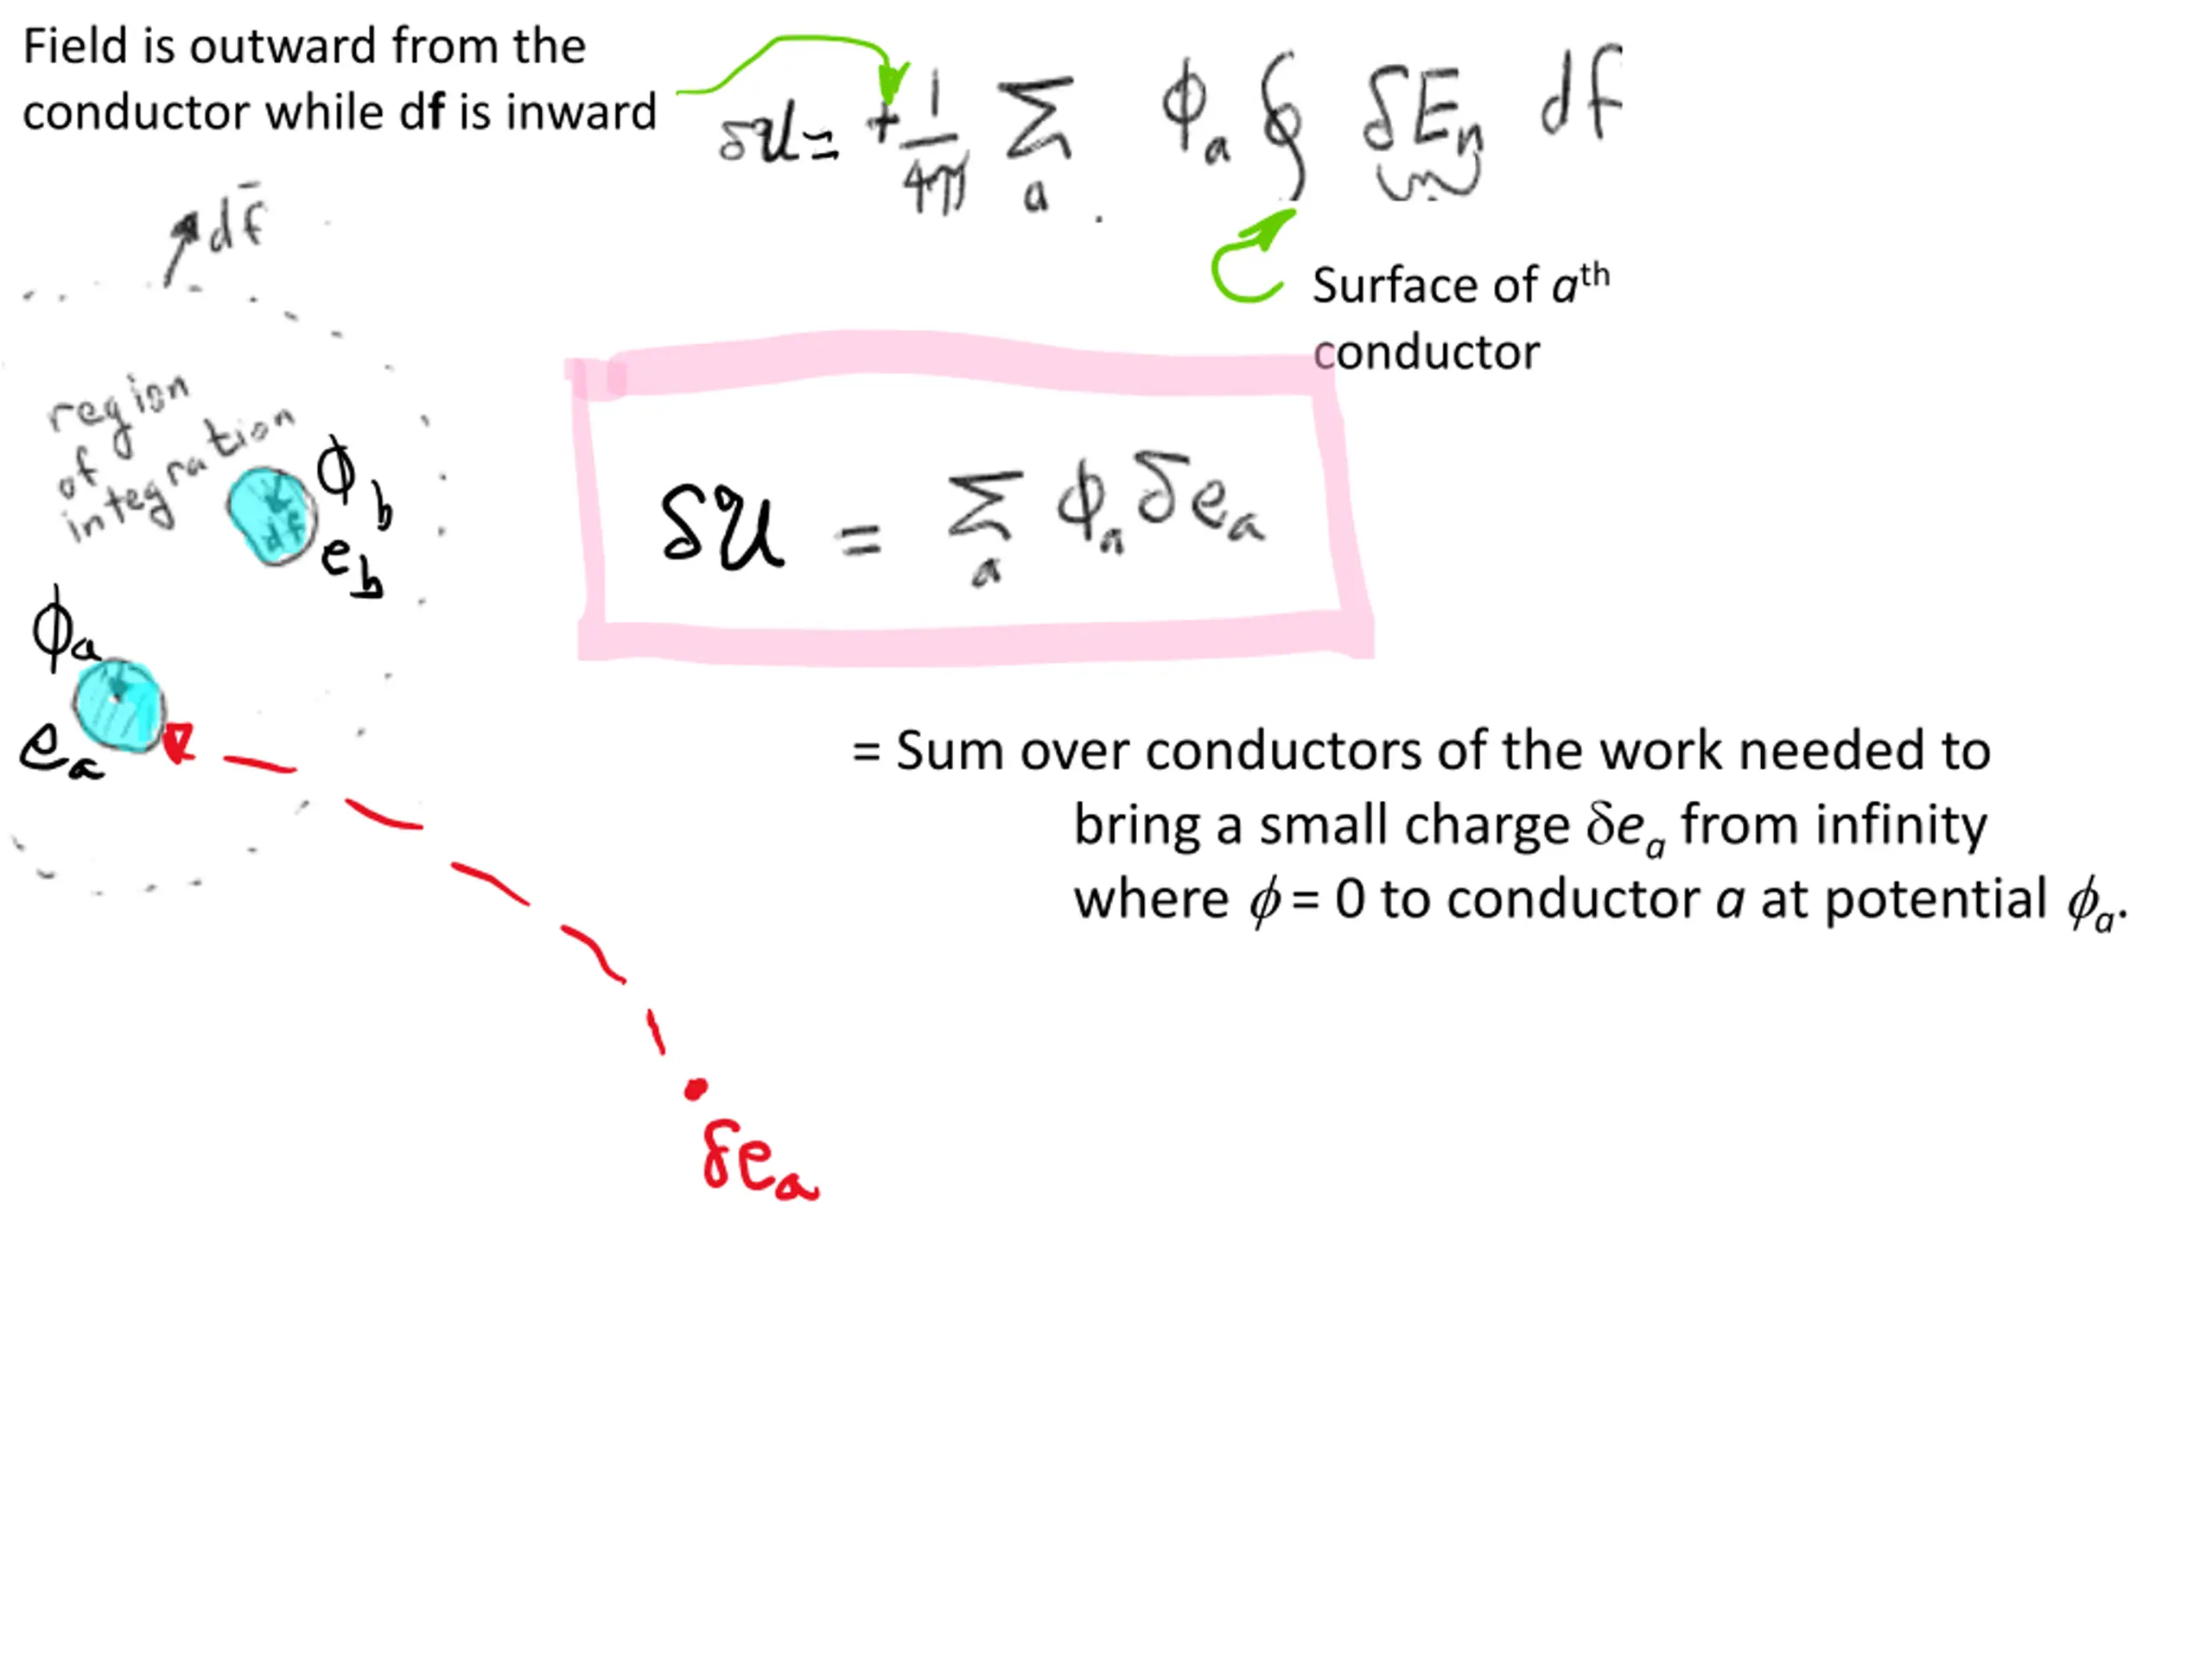 Field is outward from the
conductor while df is inward
δU = + 1/4π Σ_a ϕ_a ∮ δE_n df
Surface of a^th
conductor
df̄
region
of
integration
ϕ_b
df
e_b
ϕ_a
e_a
δU = Σ_a ϕ_a δe_a
= Sum over conductors of the work needed to
bring a small charge δe_a from infinity
where ϕ = 0 to conductor a at potential ϕ_a.
δe_a